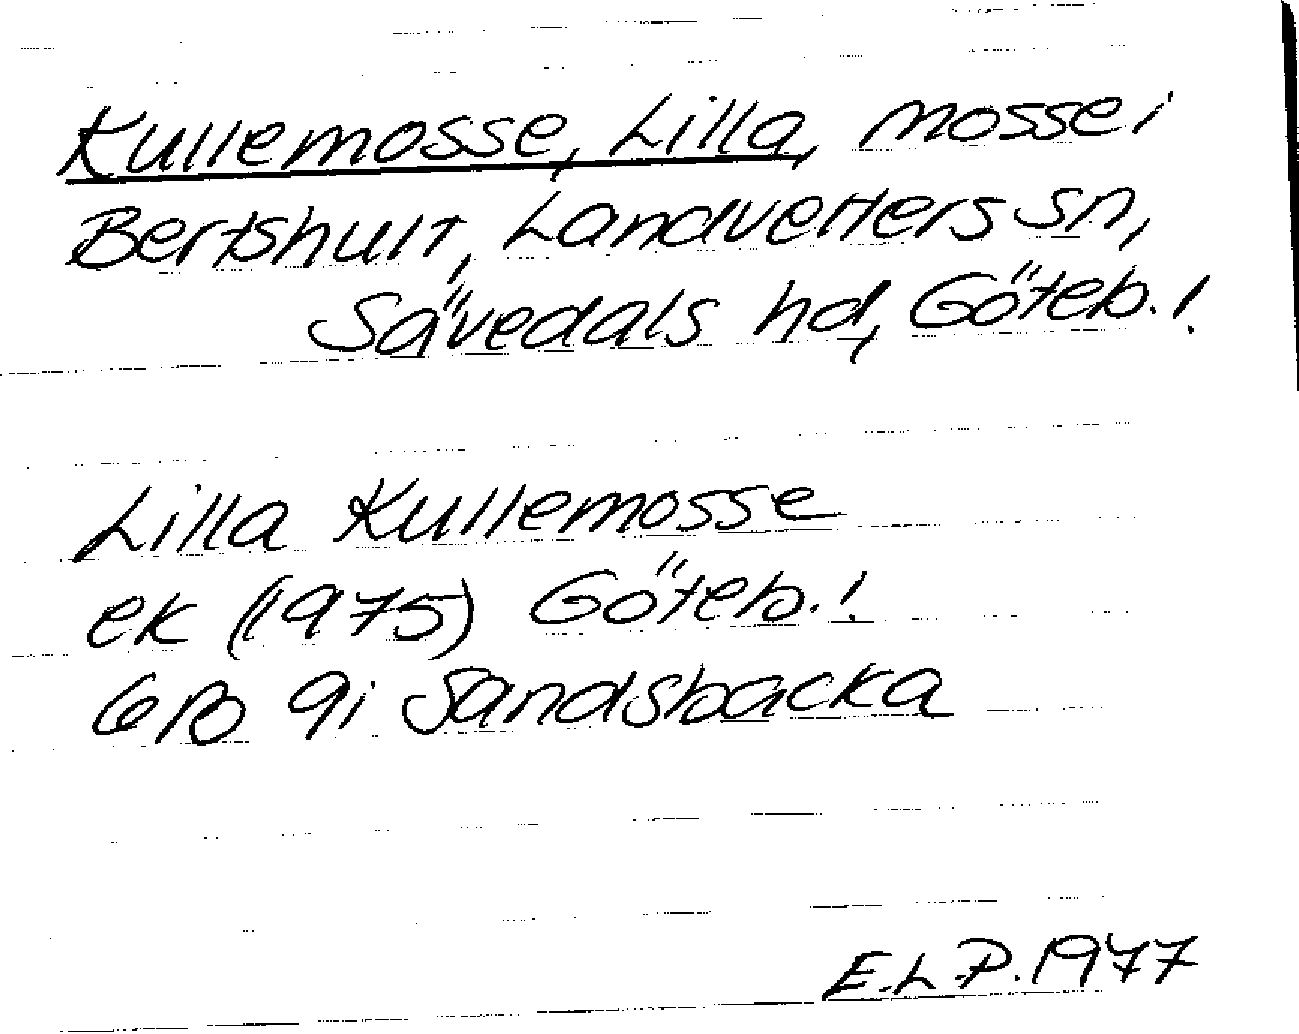 Kullemosse, Lilla, mosse i
Bertshult, Landvetters sn,
Sävedals hd, Göteb.!
Lilla Kullemosse
ek (1975) Göteb.!
6B 9i Sandsbacka
E.L.P. 1977